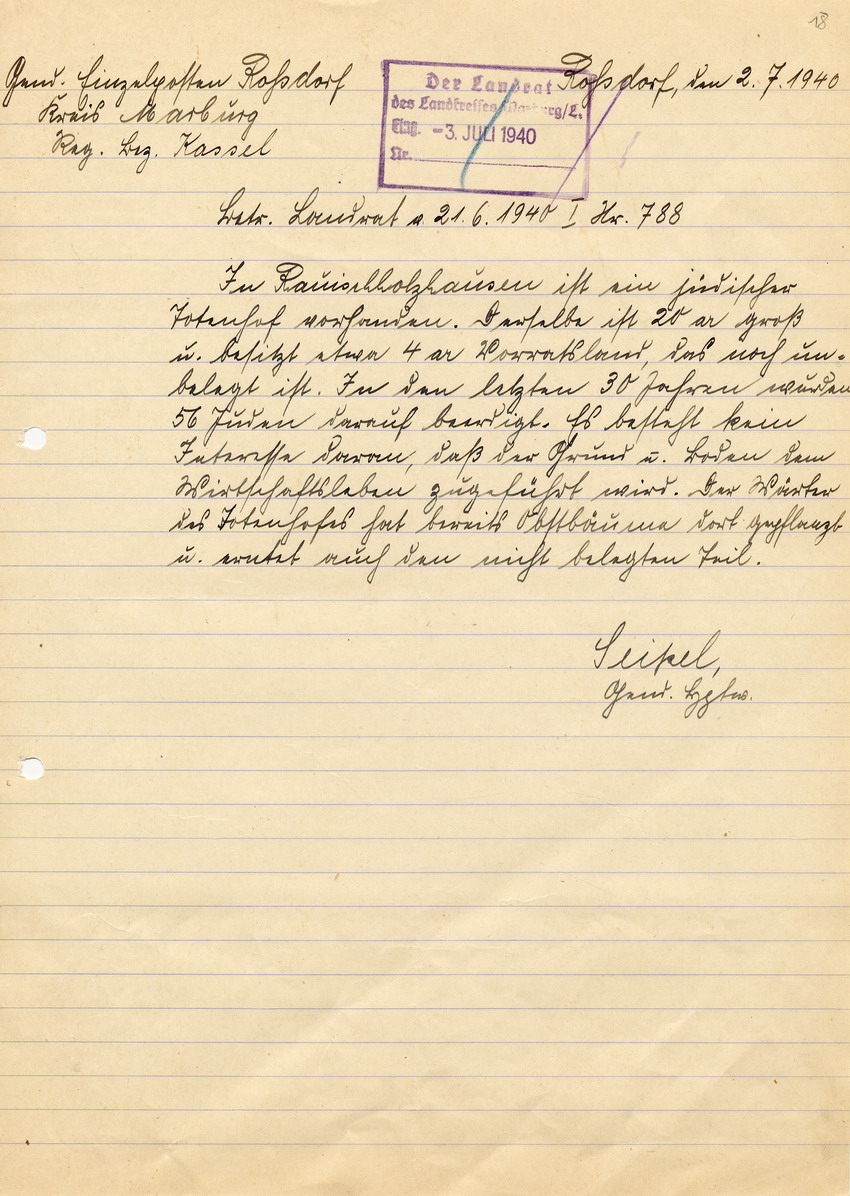 18
Gend. Einzelposten Roßdorf
Kreis Marburg
Reg. Bez. Kassel
Der Landrat
des Landkreises Marburg/L.
Eing. -3. JULI 1940
Nr.
Roßdorf, den 2.7.1940
Betr. Landrat v. 21.6.1940 I Nr. 788
In Rauischholzhausen ist ein jüdischer
Totenhof vorhanden. Derselbe ist 20 ar groß
u. besitzt etwa 4 ar Vorratsland, das noch un-
belegt ist. In den letzten 30 Jahren wurden
56 Juden darauf beerdigt. Es besteht kein
Interesse daran, daß der Grund u. Boden dem
Wirtschaftsleben zugeführt wird. Der Wärter
des Totenhofes hat bereits Obstbäume dort gepflanzt
u. erntet auch den nicht belegten Teil.
Seipel,
Gend. Hptw.